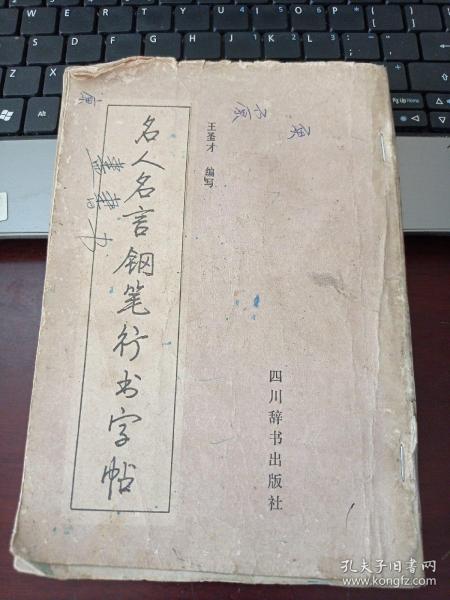 名人名言钢笔行书字帖
王圣才 编写
四川辞书出版社
孔夫子旧书网
www.kongfz.com